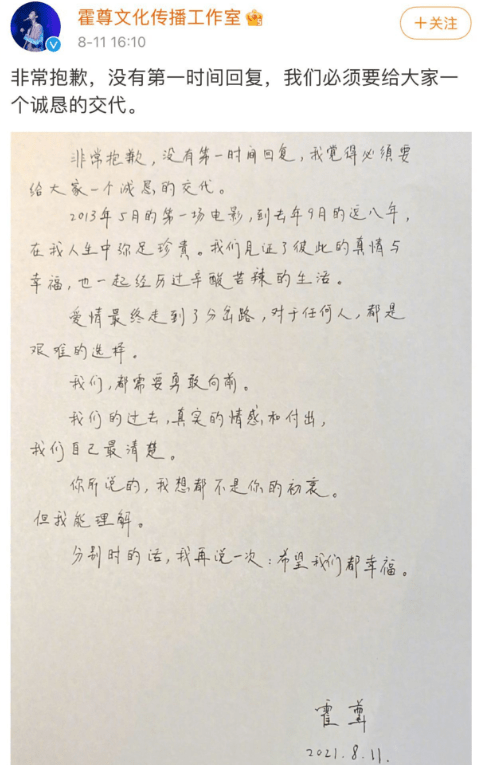 霍尊文化传播工作室
8-11 16:10
+关注
非常抱歉，没有第一时间回复，我们必须要给大家一
个诚恳的交代。
非常抱歉，没有第一时间回复，我觉得必须要
给大家一个诚恳的交代。
2013年5月的第一场电影，到去年9月的这八年，
在我人生中弥足珍贵。我们见证了彼此的真情与
幸福，也一起经历过辛酸苦辣的生活。
爱情最终走到了分岔路，对于任何人，都是
艰难的选择。
我们，都需要勇敢向前。
我们的过去，真实的情感和付出，
我们自己最清楚。
你所说的，我想都不是你的初衷。
但我能理解。
分别时的话，我再说一次：希望我们都幸福。
霍尊
2021.8.11.